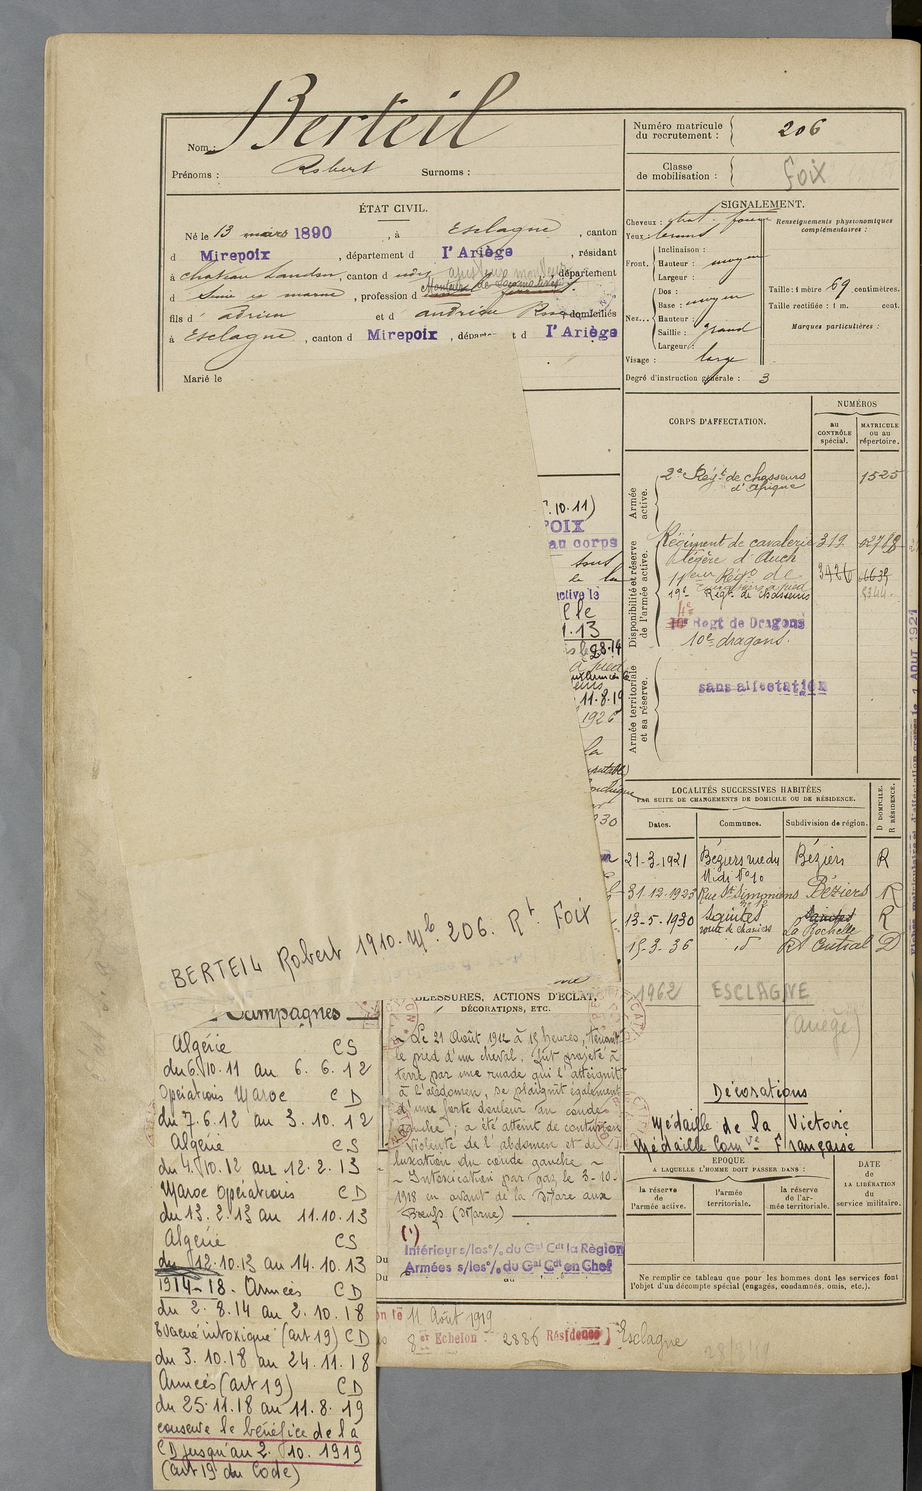 Nom : Berteil
Prénoms : Robert Surnoms :
ÉTAT CIVIL.
Né le 13 mars 1890, à Esclagne, canton
d Mirepoix, département d l'Ariège, résidant
à chateau Landon, canton d udry département
d Seine et marne, profession d
fils d' adrien et d' andrieu Rose domiciliés
à Esclagne, canton d Mirepoix, départe t d l'Ariège
Marié le
Numéro matricule du recrutement : 206
Classe de mobilisation : Foix
SIGNALEMENT.
Cheveux :
Yeux bruns
Front. Inclinaison :
Hauteur : moyen
Largeur :
Nez... Dos :
Base : moyen
Hauteur :
Saillie : grand
Largeur :
Visage : large
Renseignements physionomiques complémentaires :
Taille : 1 mètre 69 centimètres.
Taille rectifiée : 1 m. cent.
Marques particulières :
Degré d'instruction générale : 3
CORPS D'AFFECTATION.
NUMÉROS
au CONTRÔLE spécial.
MATRICULE ou au répertoire.
Armée active.
2e Régt de chasseurs d'Afrique 1525
Disponibilité et réserve de l'armée active.
Régiment de cavalerie 319
légère d'Auch
11eme Régt de 3426 6639
19e Régt de chasseurs
Regt de Dragons
10e dragons.
Armée territoriale et sa réserve.
sans affectation
.10.11)
FOIX
au corps
tout
active le
1.13
28.14
à pied
11.8.19
1926
la
LOCALITÉS SUCCESSIVES HABITÉES
PAR SUITE DE CHANGEMENTS DE DOMICILE OU DE RÉSIDENCE.
Dates. Communes. Subdivision de région. D DOMICILE. R RÉSIDENCE.
21-3-1921 Béziers Béziers R
Midi No 10
31-12-1923 Rue St Simoniens Béziers R
13-5-1930 Saintes Saintes R
La Rochelle
15-3-36 id Rt Central D
1962 ESCLAGNE
(Ariège)
Décorations
Médaille de la Victoire
Médaille Comve Française
EPOQUE
A LAQUELLE L'HOMME DOIT PASSER DANS :
la réserve de l'armée active.
l'armée territoriale.
la réserve de l'armée territoriale.
DATE de LA LIBÉRATION du service militaire.
Ne remplir ce tableau que pour les hommes dont les services font
l'objet d'un décompte spécial (engagés, condamnés, omis, etc.).
BERTEIL Robert 1910. Mle. 206. Rt. Foix
BLESSURES, ACTIONS D'ÉCLAT,
DÉCORATIONS, ETC.
Le 21 Août 1912 à 15 heures, tenant
le pied d'un cheval, fut projeté à
terre par une ruade qui l'atteignit
à l'abdomen, se plaignit également
d'une forte douleur au coude
gauche ; a été atteint de contusion
violente de l'abdomen et de
luxation du coude gauche ~
~ Intoxication par gaz le 3-10-
1918 en avant de la Mare aux
Boeufs (Marne)
(1)
Intérieur s/les o/ du Gal Cdt la Région
Armées s/les o/ du Gal Cdt en Chef
Du
Du au
on le 11 Août 1919
8er Echelon 2886 Résidence Esclagne
28/3/19
Campagnes
Algérie CS
du 6.10.11 au 6.6.12
Opérations Maroc CD
du 7.6.12 au 3.10.12
Algérie CS
du 4.10.12 au 12.2.13
Maroc opérations CD
du 13.2.13 au 11.10.13
Algérie CS
du 12.10.13 au 14.10.13
1914-18. Armées CD
du 2.8.14 au 2.10.18
Evacué intoxiqué (art 19) CD
du 3.10.18 au 24.11.18
Armées (art 19) CD
du 25.11.18 au 11.8.19
conserve le bénéfice de la
CD jusqu'au 2.10.1919
(art 19 du Code)